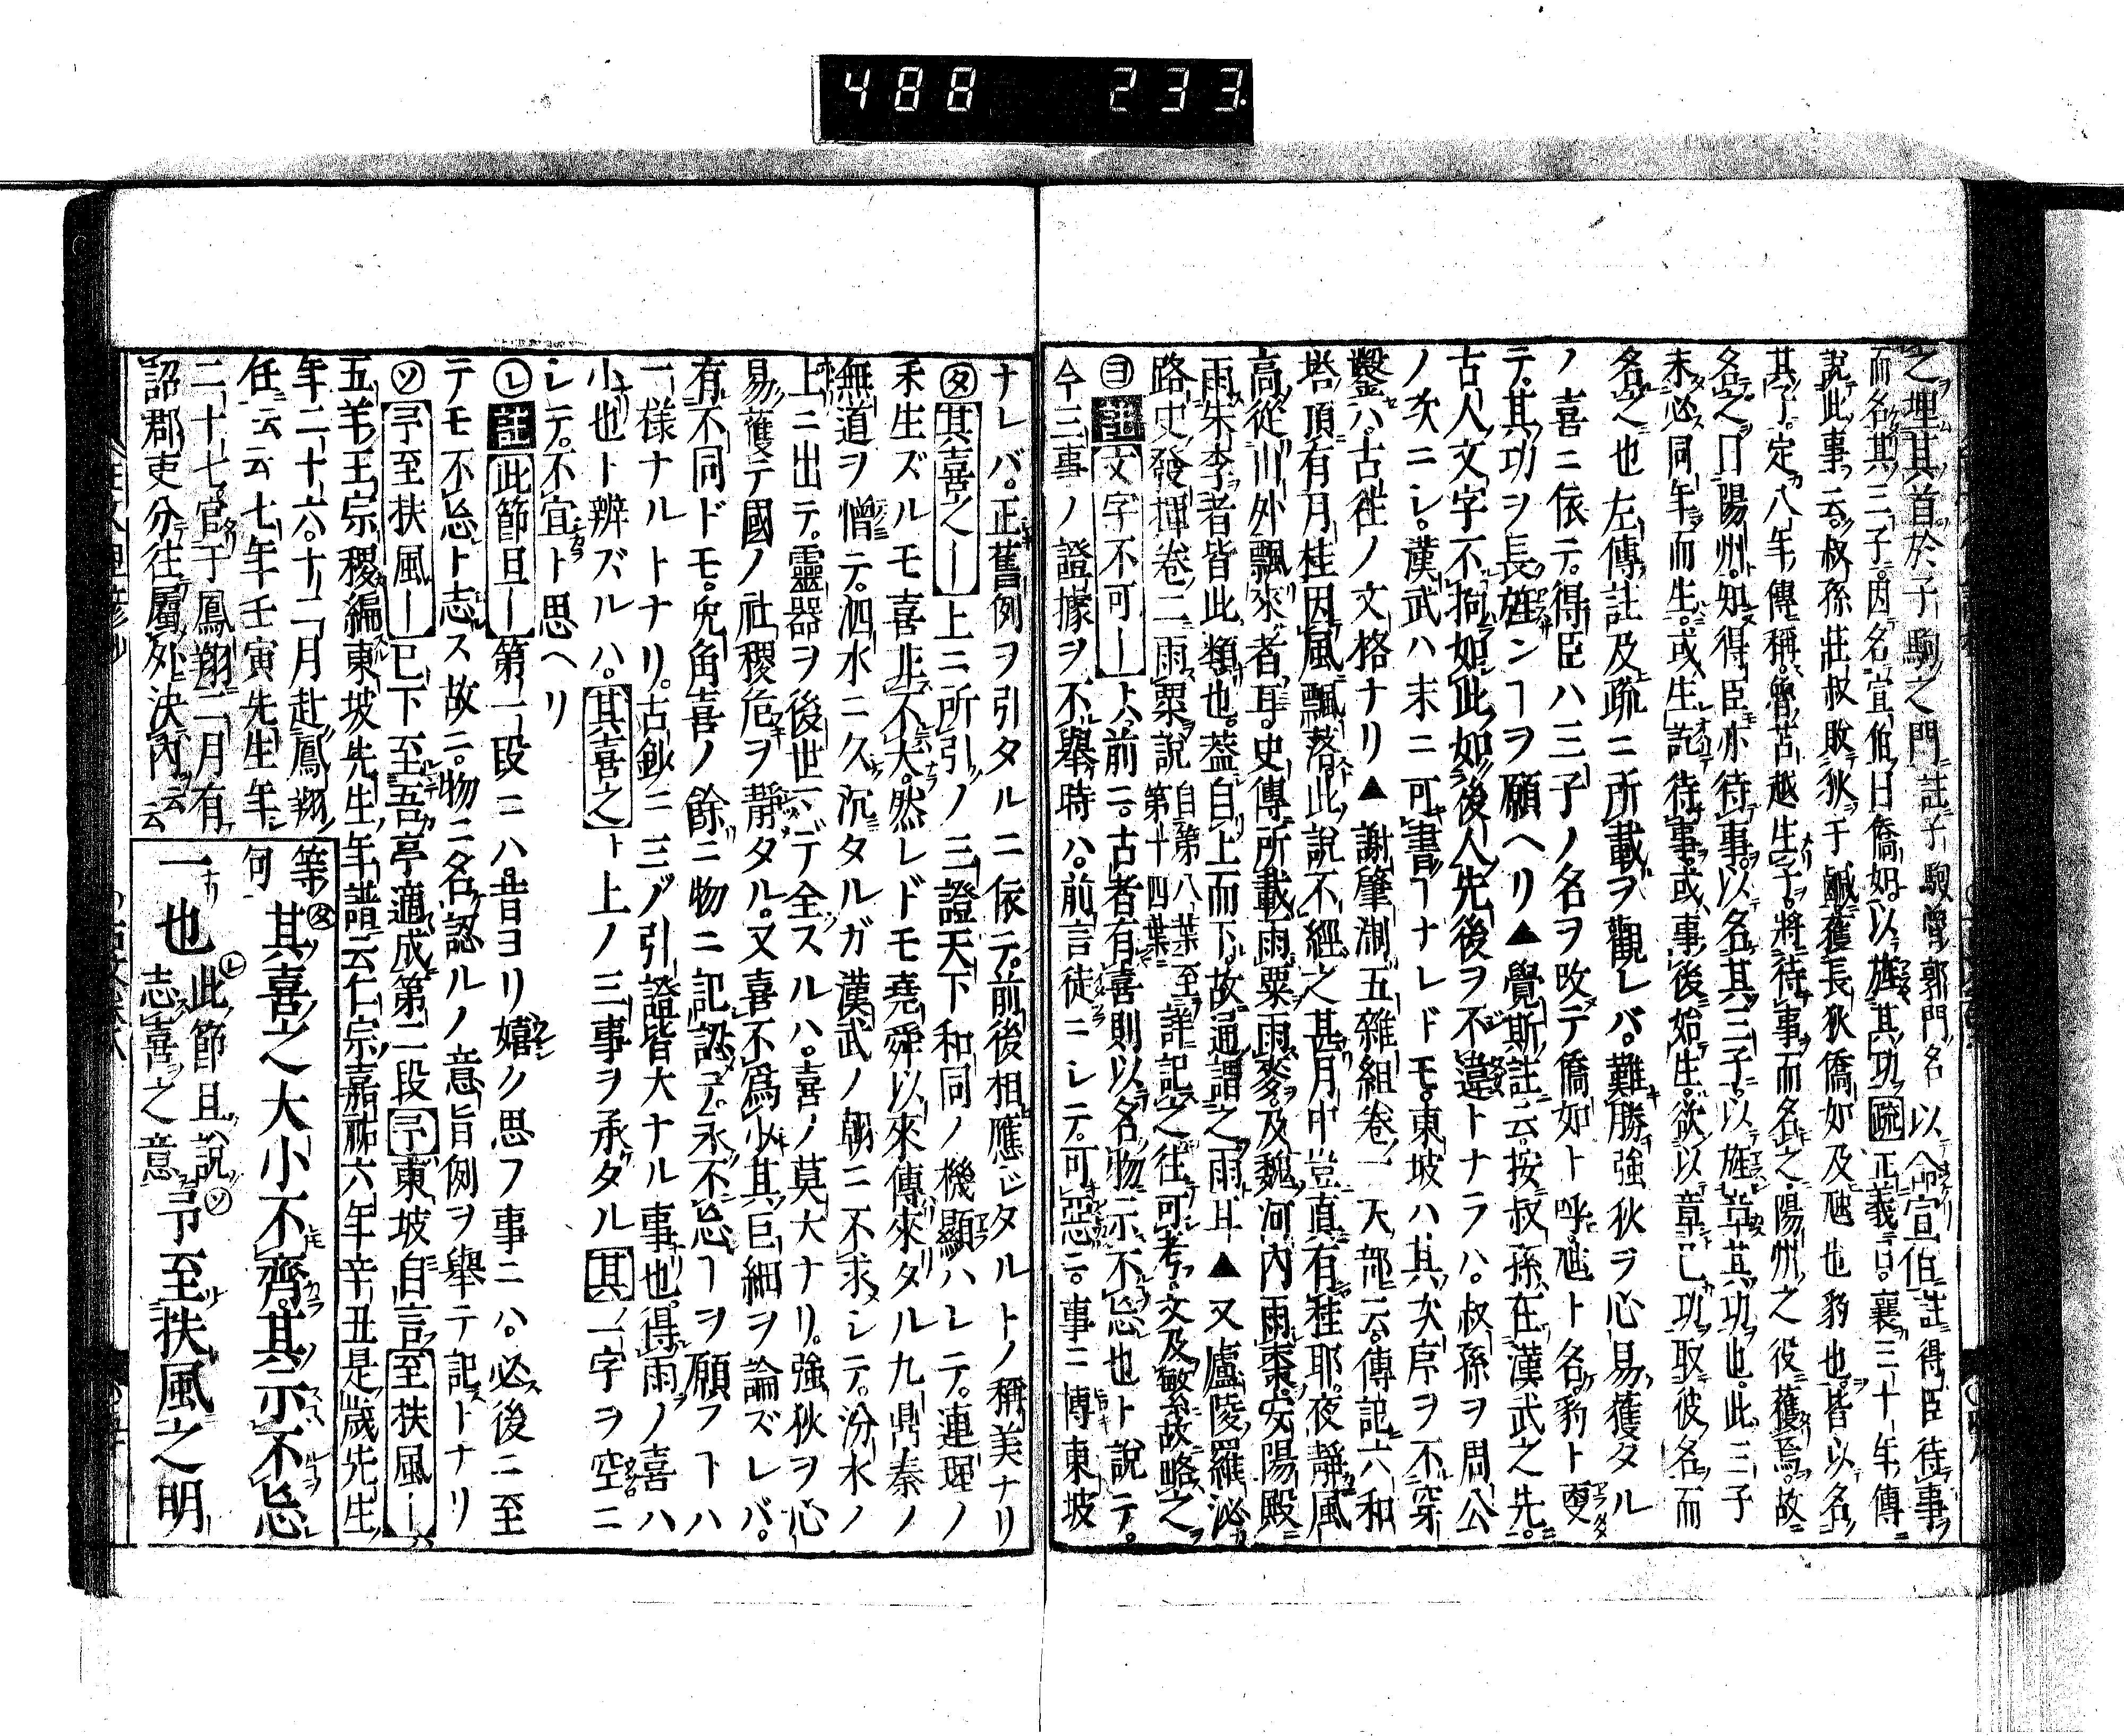 488 233
之埋其首於子駒之門註子駒魯郭門名以命宣伯註得臣待事
而名其三子因名宣伯曰僑如以旌其功疏正義曰襄三十年傳
說此事云叔孫莊叔敗狄于鹹獲長狄僑如及虺也豹也皆以名
其子定八年傳稱魯苫越生子將待事而名之陽州之役獲焉故
名之曰陽州知得臣亦待事以名其三子以旌章其功也此三子
未必同年而生或生訖待事或事後始生欲以章已功取彼名而
名之也左傳註及疏ニ所載ヲ觀レバ難勝強狄ヲ心易獲タル
ノ喜ニ依テ得臣ハ三子ノ名ヲ改デ僑如ト呼虺ト名豹ト更
テ其功ヲ長旌ンヿヲ願ヘリ▲覺斯註云按叔孫在漢武之先
古人文字不拘如此如後人先後ヲ不違トナラハ叔孫ヲ周公
ノ次ニシ漢武ハ末ニ可書ヿナレドモ東坡ハ其次序ヲ不穿
鑿ハ古徃ノ文格ナリ▲謝肇淛五雜組卷一天部云傳記六和
塔頂有月桂因風飄落此說不經之甚月中豈真有桂耶夜靜風
高從川外飄來者耳史傳所載雨粟雨麥及魏河內雨棗安陽殿
雨朱李者皆此類也葢自上而下故通謂之雨耳▲又盧陵羅泌
路史發揮卷二雨粟說自第八葉至第十四葉詳記之往可考文及繁故略之
ヨ註文字不可ー上前ニ古者有喜則以名物示不忘也ト說テ
今三事ノ證據ヲ不舉時ハ前言徒ニシテ可惡ニ事ニ博東坡
ナレバ正舊例ヲ引タルニ依テ前後相應ジタルトノ稱美ナリ
タ其喜之ー上ニ所引ノ三證天下和同ノ機顯ハレテ連理ノ
禾生ズルモ喜非不大然レドモ堯舜以來傳來タル九鼎秦ノ
無道ヲ憎テ泗水ニ久沉タルガ漢武ノ朝ニ不求シテ汾水ノ
上ニ出テ靈器ヲ後世マデ全スルハ喜ノ莫大ナリ強狄ヲ心
易獲テ國ノ社稷危ヲ靜タル又喜不爲少其巨細ヲ論ズレバ
有不同ドモ兊角喜ノ餘ニ物ニ記認テ永不忘ヿヲ願フヿハ
一樣ナルトナリ古鈔ニ三ノ引證皆大ナル事也得雨ノ喜ハ
小也ト辨ズルハ其喜之ート上ノ三事ヲ承タル其ノ一字ヲ空ニ
シテ不宜ト思ヘリ
レ註此節且ー第一段ニハ昔ヨリ嬉ク思フ事ニハ必後ニ至
テモ不忘ト志ス故ニ物ニ名認ルノ意旨例ヲ舉テ記トナリ
ソ予至扶風ー已下至吾亭適成第二段予東坡自言至扶風ー
五羊王宗稷編東坡先生年譜云仁宗嘉祐六年辛丑是歲先生
年二十六十二月赴鳳翔
任云云七年壬寅先生年
二十七官于鳳翔二月有
詔郡吏分往屬処決內云云
等句タ其喜之大小不齊其示不忘
一也レ此節且說志喜之意ソ予至扶風之明